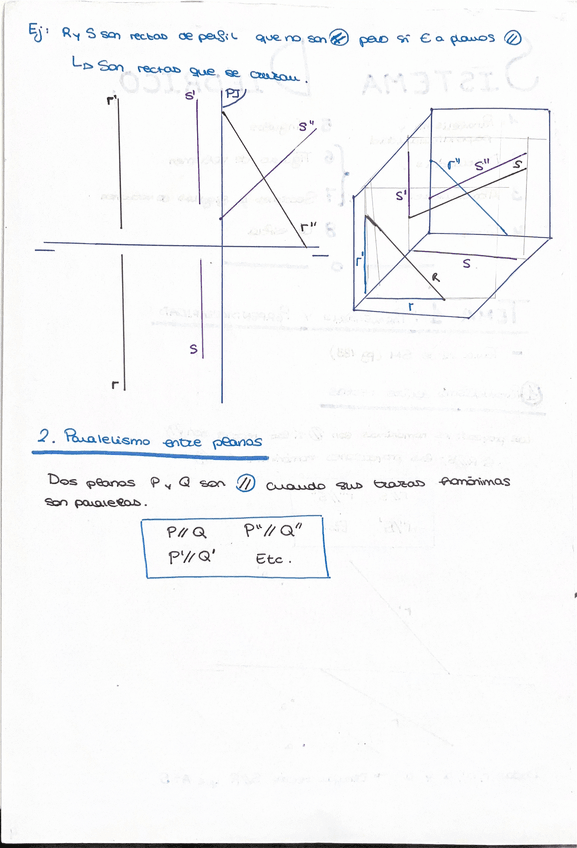 Ej: R y S son rectas de perfil que no son // pero si ∈ a planos //
↳ Son rectas que se cruzan.
r' s' PJ s"
r"
s
r
r" s" s
s'
r' R s
r
2. Paralelismo entre planos
Dos planos P y Q son // cuando sus trazas homónimas
son paralelas.
P//Q P"//Q"
P'//Q' Etc.